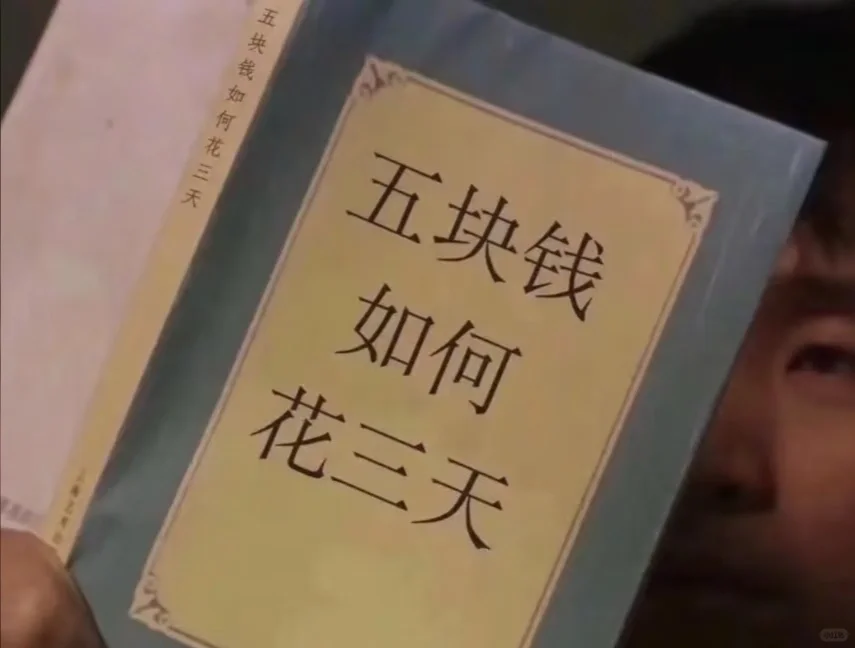 五块钱如何花三天
五块钱
如何
花三天